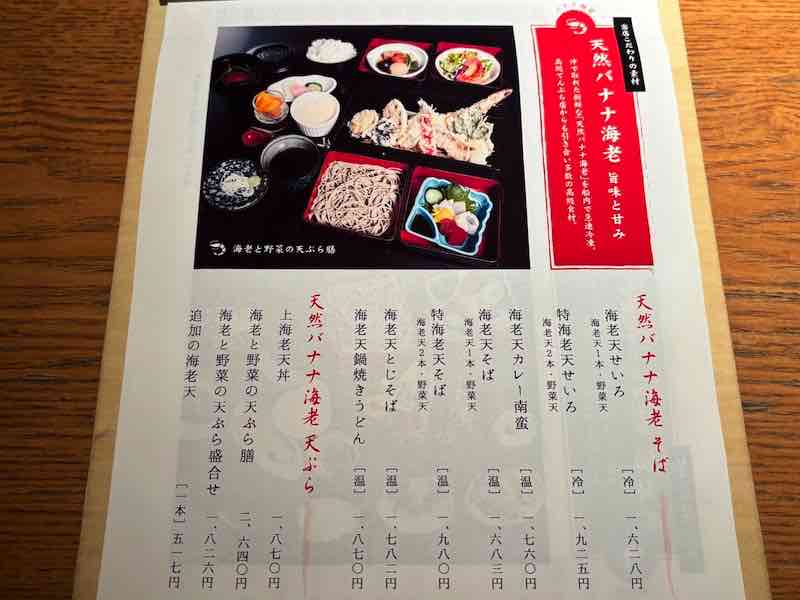 当店こだわりの素材
天然バナナ海老 旨味と甘み
沖で取れた新鮮な「天然バナナ海老」を船内で急速冷凍。
高級てんぷら店からも引き合い多数の高級食材。
海老と野菜の天ぷら膳
天然バナナ海老 そば
海老天せいろ [冷] 一、六二八円
海老天1本・野菜天
特海老天せいろ [冷] 一、九二五円
海老天2本・野菜天
海老天カレー南蛮 [温] 一、七六〇円
海老天そば [温] 一、六八三円
海老天1本・野菜天
特海老天そば [温] 一、九八〇円
海老天2本・野菜天
海老天とじそば [温] 一、七八二円
海老天鍋焼きうどん [温] 一、八七〇円
天然バナナ海老 天ぷら
上海老天丼 一、八七〇円
海老と野菜の天ぷら膳 二、六四〇円
海老と野菜の天ぷら盛合せ 一、八二六円
追加の海老天 [一本] 五一七円